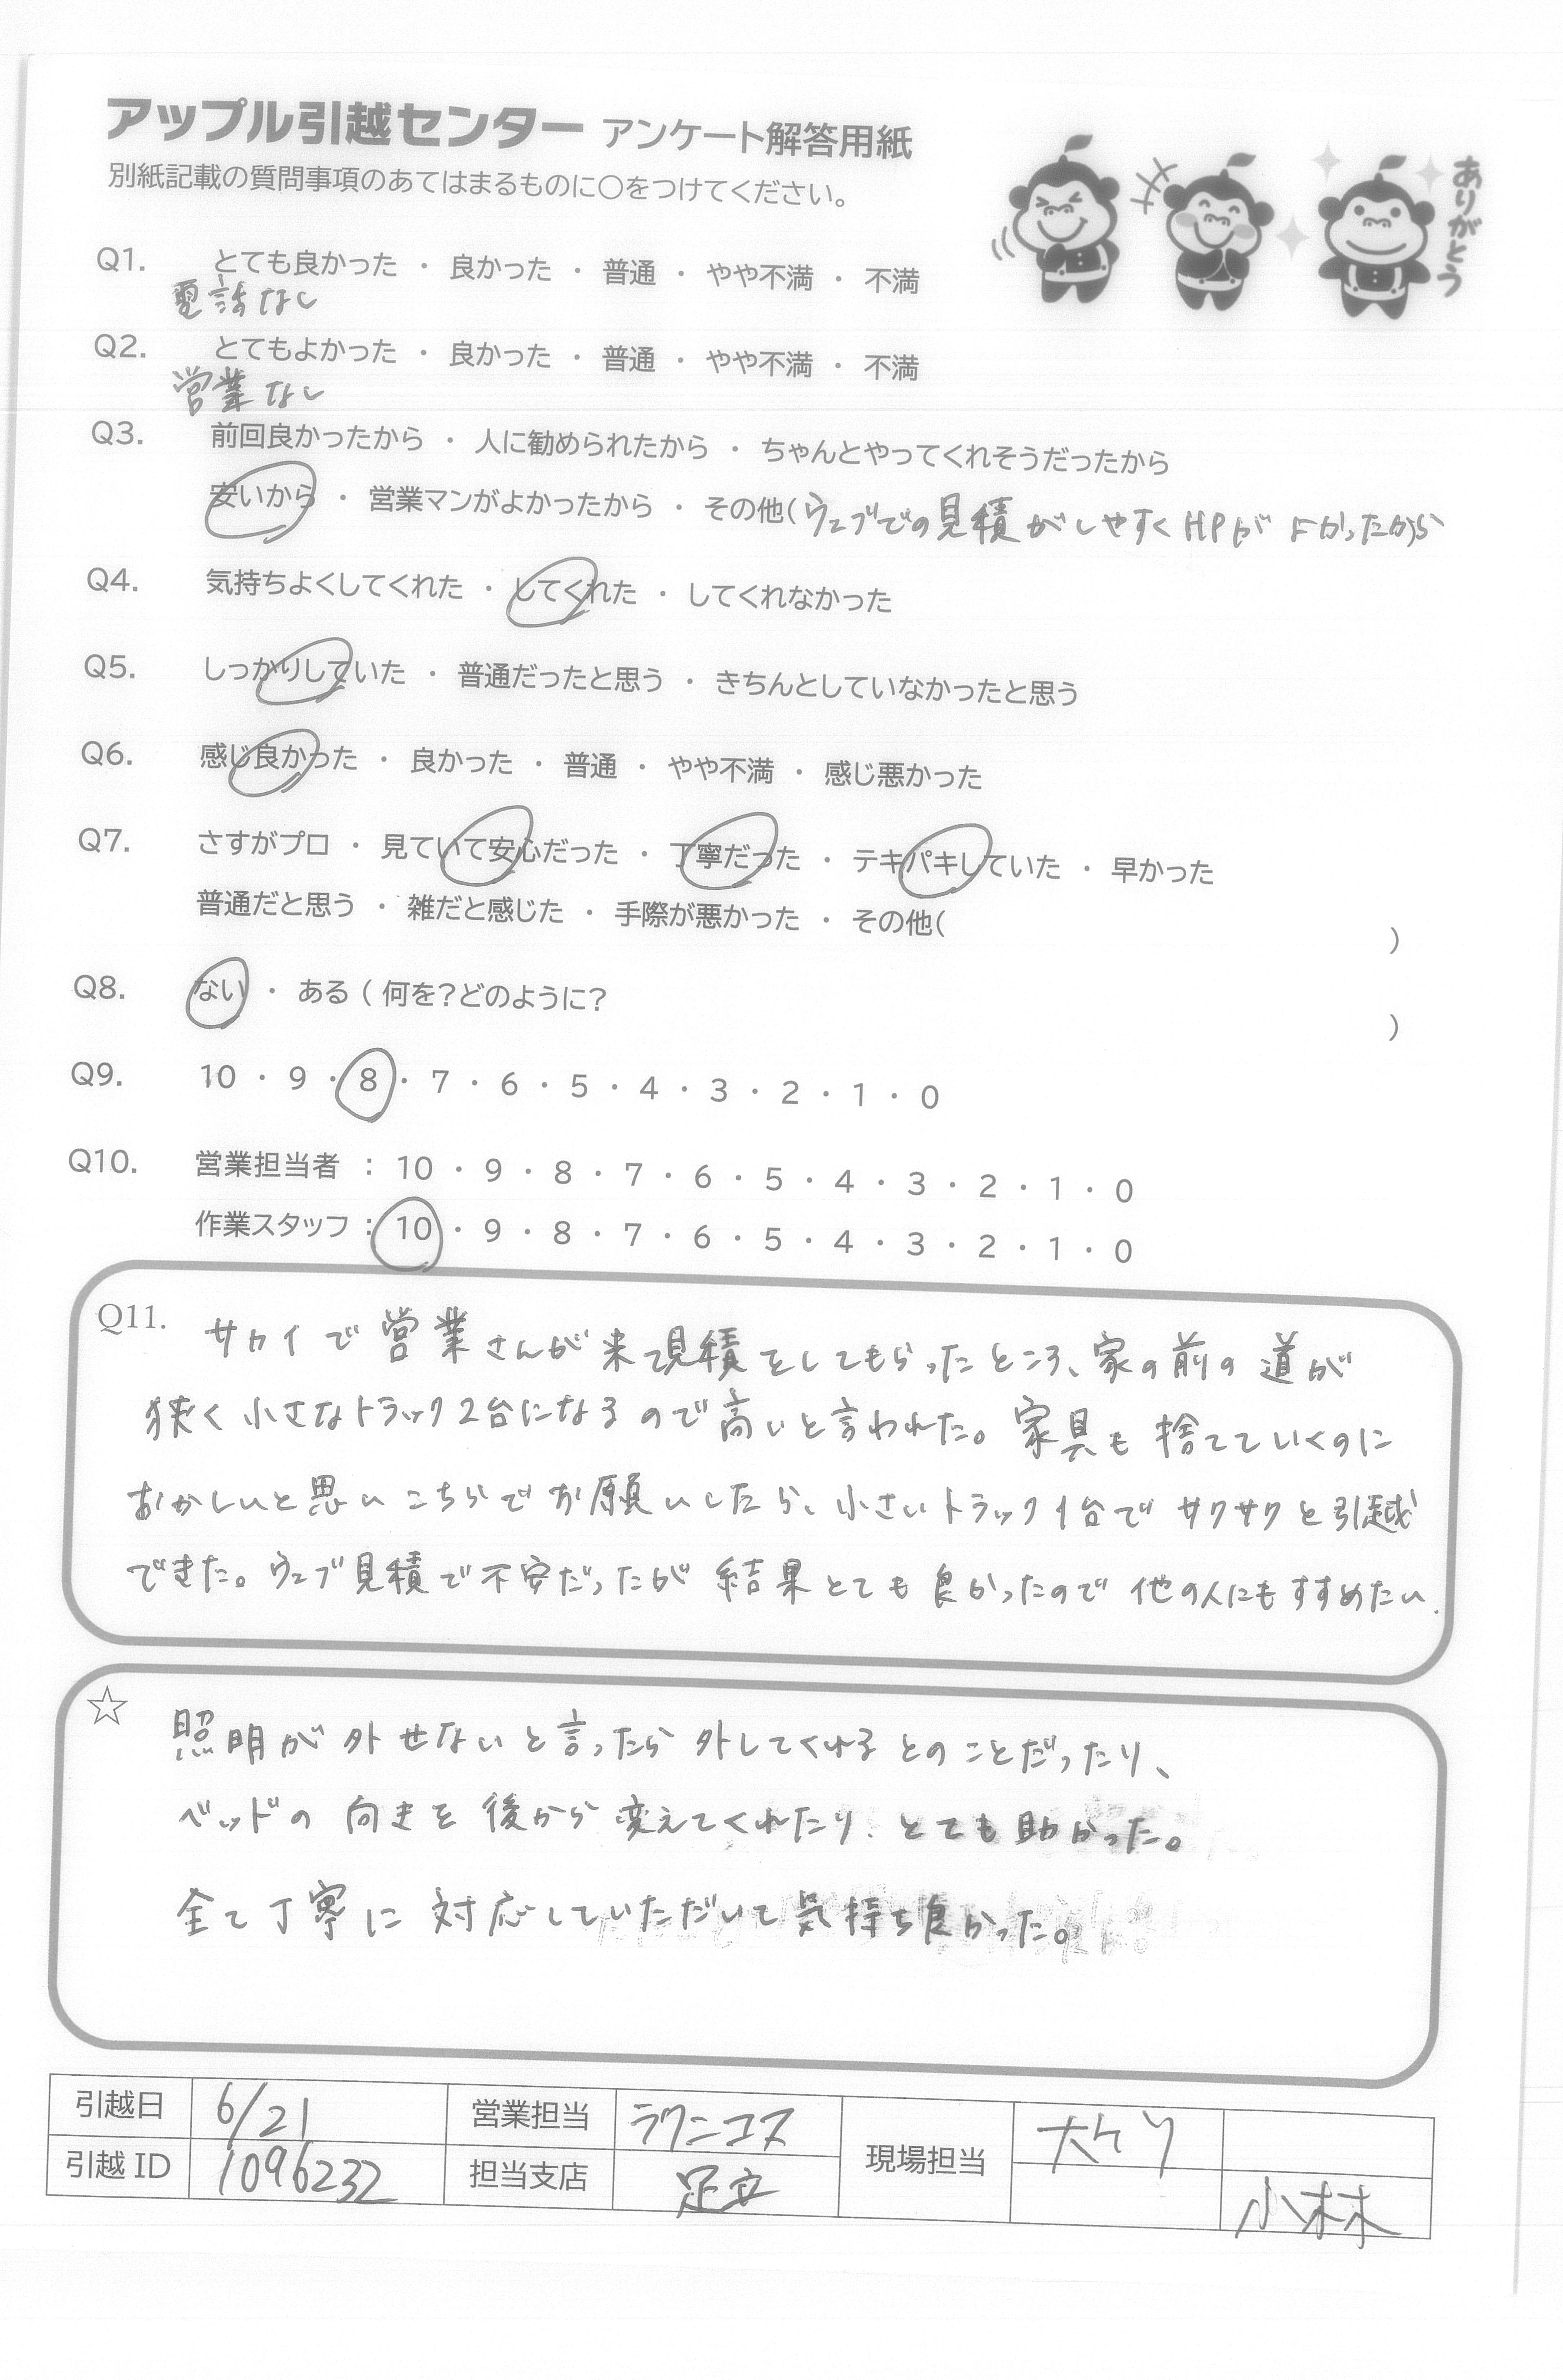 アップル引越センター アンケート解答用紙
ありがとう
別紙記載の質問事項のあてはまるものに○をつけてください。
Q1. とても良かった ・ 良かった ・ 普通 ・ やや不満 ・ 不満
電話なし
Q2. とてもよかった ・ 良かった ・ 普通 ・ やや不満 ・ 不満
営業なし
Q3. 前回良かったから ・ 人に勧められたから ・ ちゃんとやってくれそうだったから
安いから ・ 営業マンがよかったから ・ その他( ウェブでの見積がしやすくHPがよかったから
Q4. 気持ちよくしてくれた ・ してくれた ・ してくれなかった
Q5. しっかりしていた ・ 普通だったと思う ・ きちんとしていなかったと思う
Q6. 感じ良かった ・ 良かった ・ 普通 ・ やや不満 ・ 感じ悪かった
Q7. さすがプロ ・ 見ていて安心だった ・ 丁寧だった ・ テキパキしていた ・ 早かった
普通だと思う ・ 雑だと感じた ・ 手際が悪かった ・ その他( )
Q8. ない ・ ある ( 何を?どのように? )
Q9. 10 ・ 9 ・ 8 ・ 7 ・ 6 ・ 5 ・ 4 ・ 3 ・ 2 ・ 1 ・ 0
Q10. 営業担当者 : 10 ・ 9 ・ 8 ・ 7 ・ 6 ・ 5 ・ 4 ・ 3 ・ 2 ・ 1 ・ 0
作業スタッフ : 10 ・ 9 ・ 8 ・ 7 ・ 6 ・ 5 ・ 4 ・ 3 ・ 2 ・ 1 ・ 0
Q11. サカイで営業さんが来て見積をしてもらったところ、家の前の道が
狭く小さなトラック2台になるので高いと言われた。家具も捨てていくのに
おかしいと思いこちらでお願いしたら、小さいトラック1台でサクサクと引越
できた。ウェブ見積で不安だったが結果とても良かったので他の人にもすすめたい.
☆ 照明が外せないと言ったら外してくれるとのことだったり、
ベッドの向きを後から変えてくれたり、とても助かった。
全て丁寧に対応していただいて気持ち良かった。
引越日 6/21 営業担当 ラクニコス 現場担当 大ケツ
引越 ID 1096232 担当支店 足立 小林